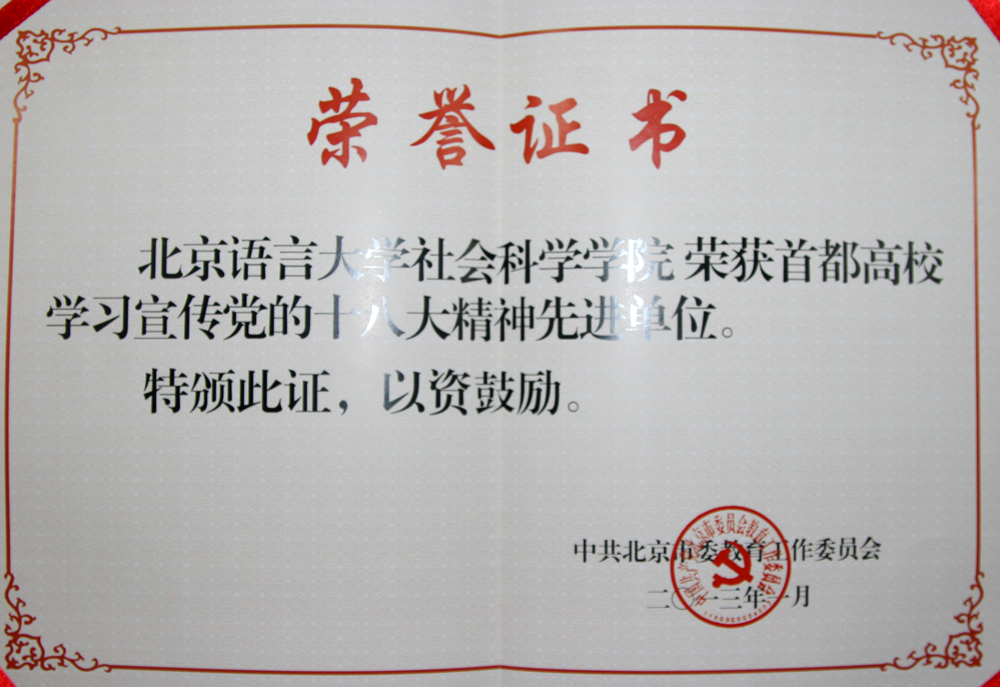 荣誉证书
北京语言大学社会科学学院 荣获首都高校
学习宣传党的十八大精神先进单位。
特颁此证，以资鼓励。
中共北京市委教育工作委员会
二〇一三年一月
中国共产党北京市委员会教育工作委员会